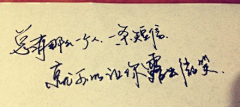 总有那么一个人,一条短信,
就可以让你露出微笑.